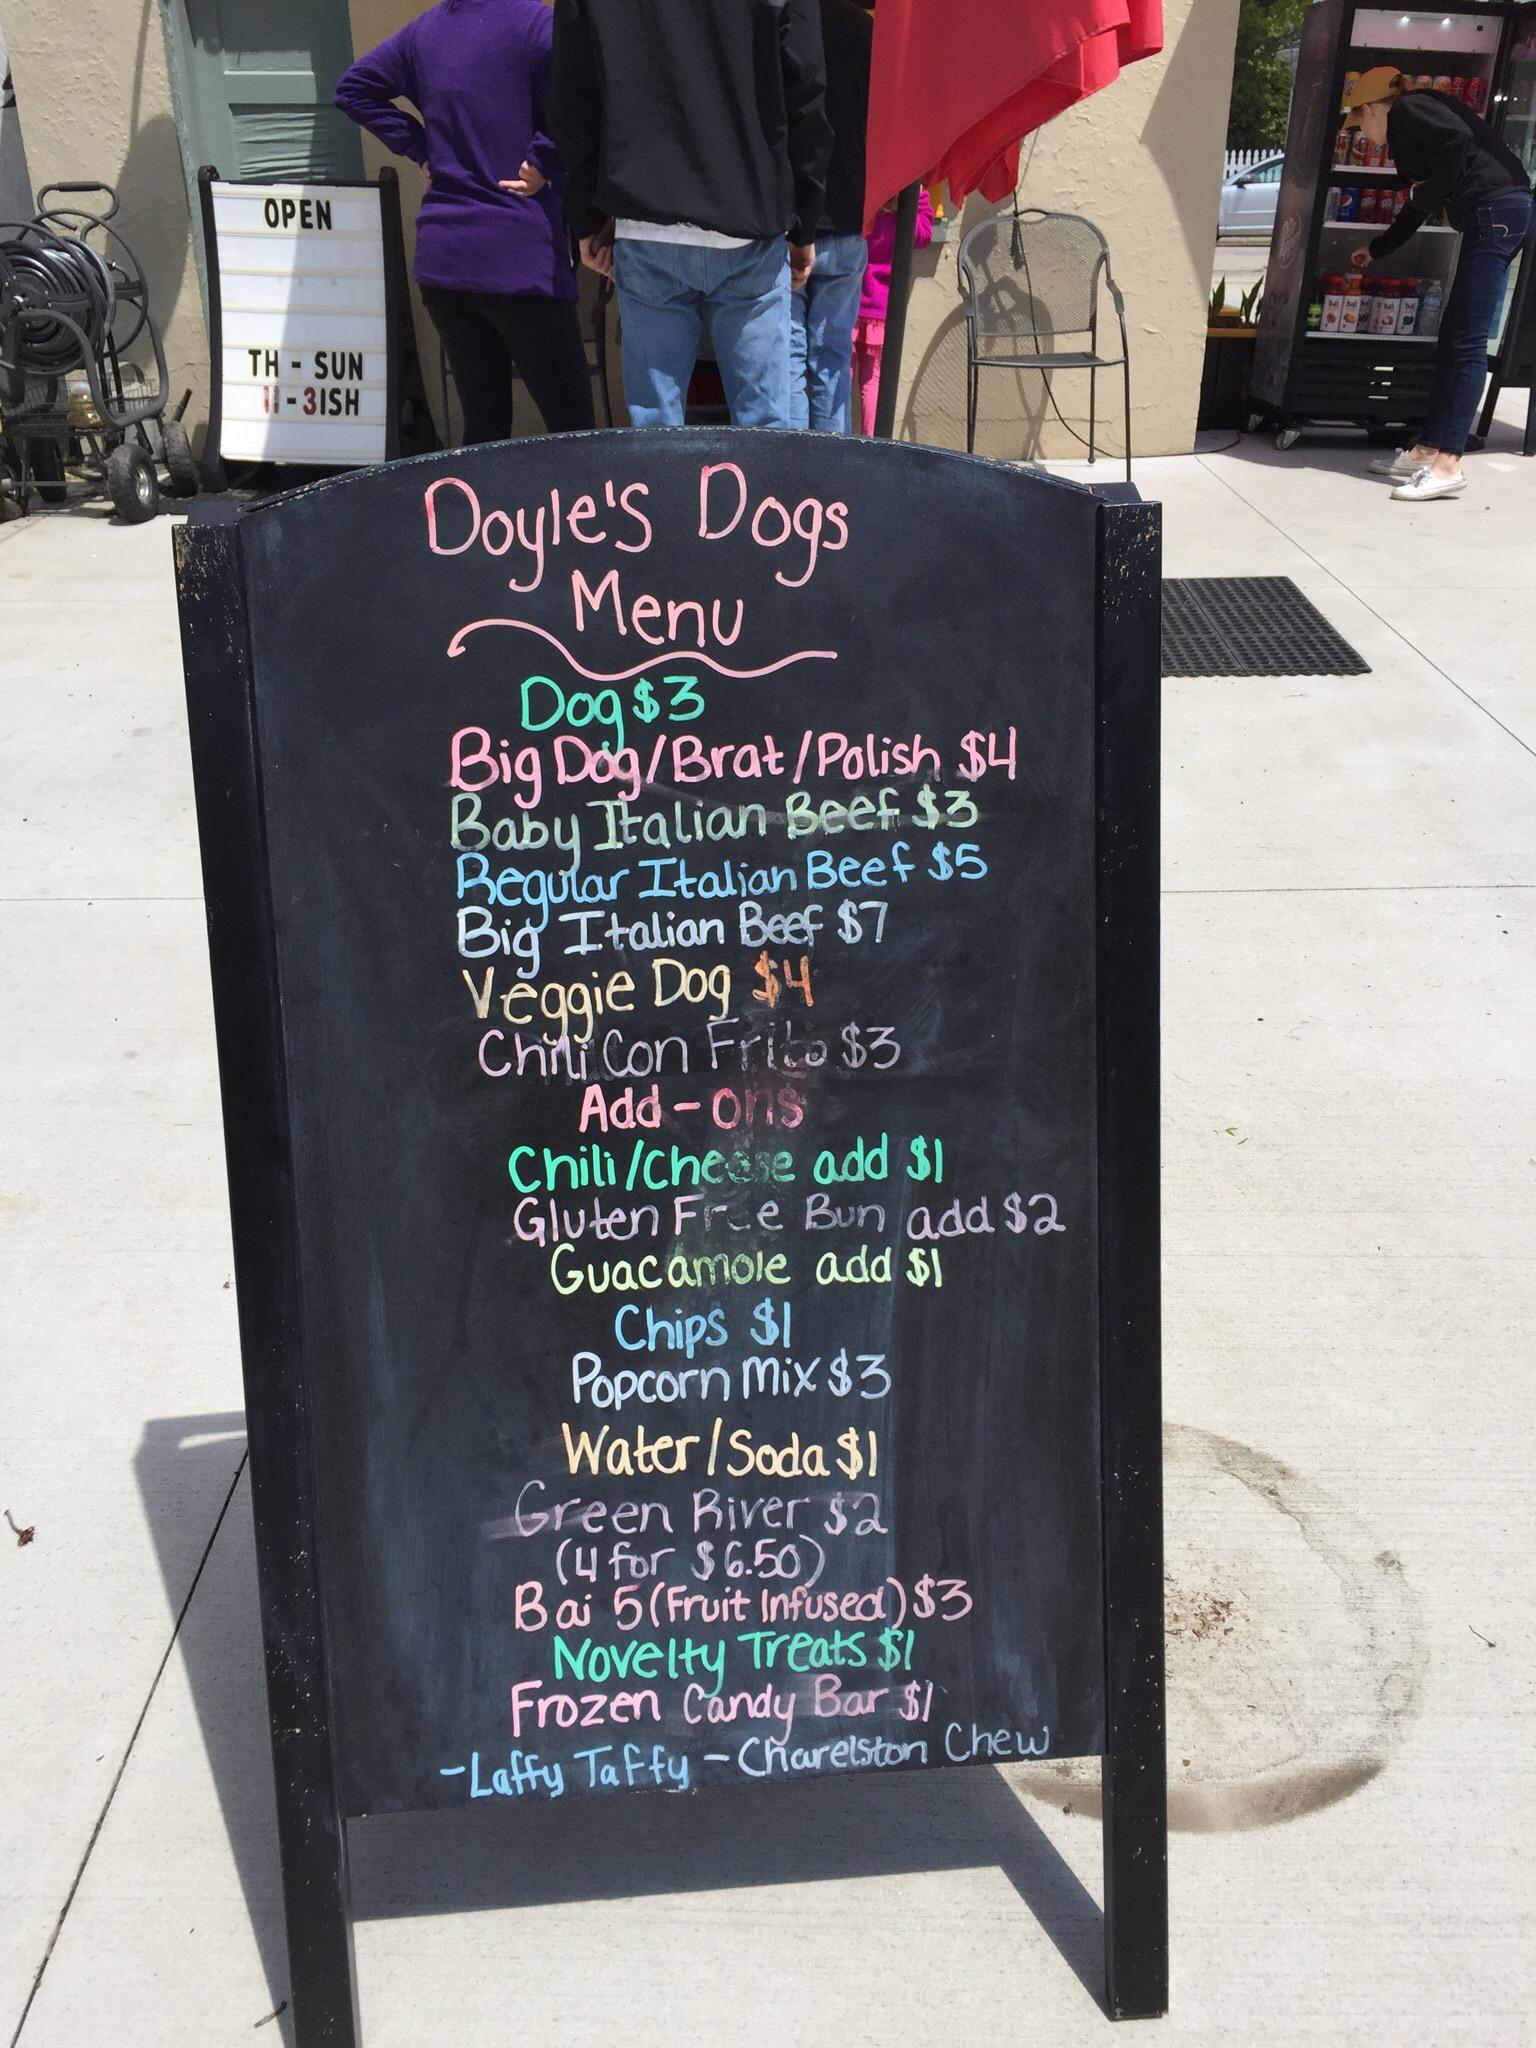 OPEN
TH - SUN
11 - 3ISH
Doyle's Dogs
Menu
Dog $3
Big Dog/Brat/Polish $4
Baby Italian Beef $3
Regular Italian Beef $5
Big Italian Beef $7
Veggie Dog $4
Chili Con Frito $3
Add-ons
Chili/Cheese add $1
Gluten Free Bun add $2
Guacamole add $1
Chips $1
Popcorn Mix $3
Water/Soda $1
Green River $2
(4 for $6.50)
Bai 5 (Fruit Infused) $3
Novelty Treats $1
Frozen Candy Bar $1
-Laffy Taffy -Charelston Chew
bai bai bai bai